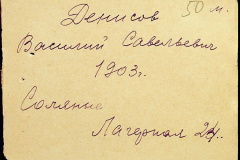 50 м.
Денисов
Василий Савельевич
1903 г.
Соляные
Лагерная 24.